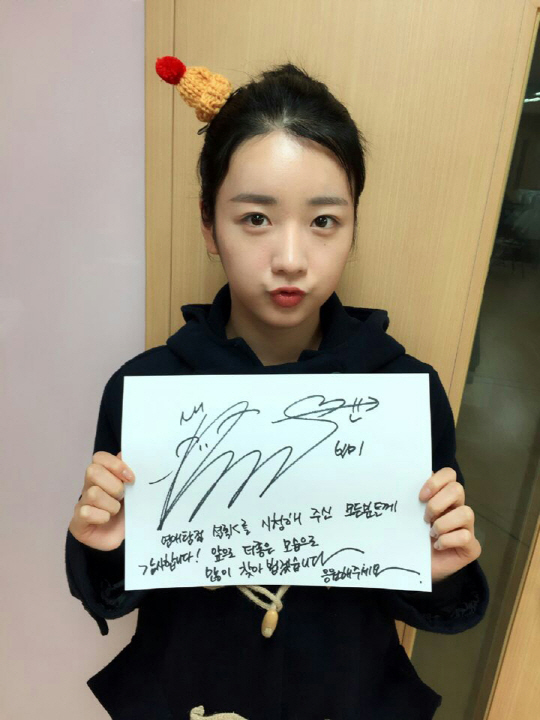 보미
연애탐정 셜록K를 시청해 주신 모든분들께
감사합니다! 앞으로 더좋은 모습으로
많이 찾아 뵙겠습니다
응원해주세요